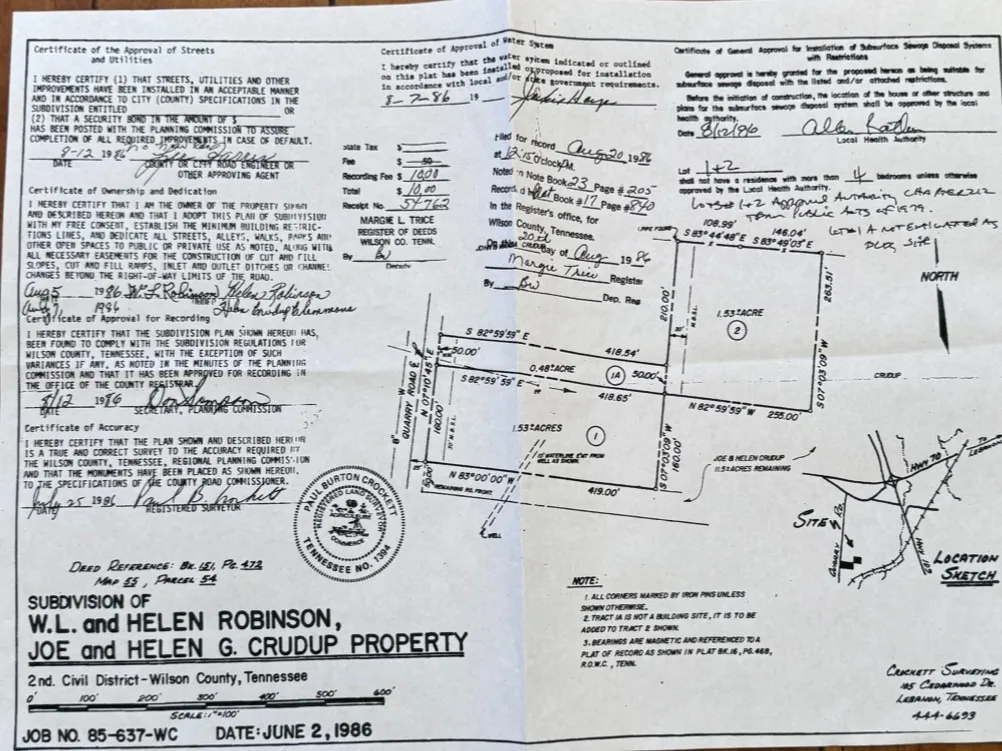 Certificate of the Approval of Streets
and Utilities
I HEREBY CERTIFY (1) THAT STREETS, UTILITIES AND OTHER
IMPROVEMENTS HAVE BEEN INSTALLED IN AN ACCEPTABLE MANNER
AND IN ACCORDANCE TO CITY (COUNTY) SPECIFICATIONS IN THE
SUBDIVISION ENTITLED OR
(2) THAT A SECURITY BOND IN THE AMOUNT OF $
HAS BEEN POSTED WITH THE PLANNING COMMISSION TO ASSURE
COMPLETION OF ALL REQUIRED IMPROVEMENTS IN CASE OF DEFAULT.
8-12 1986
DATE COUNTY OR CITY ROAD ENGINEER OR
OTHER APPROVING AGENT
Certificate of Ownership and Dedication
I HEREBY CERTIFY THAT I AM THE OWNER OF THE PROPERTY SHOWN
AND DESCRIBED HEREON AND THAT I ADOPT THIS PLAN OF SUBDIVISION
WITH MY FREE CONSENT, ESTABLISH THE MINIMUM BUILDING RESTRIC-
TIONS LINES, AND DEDICATE ALL STREETS, ALLEYS, WALKS, PARKS AND
OTHER OPEN SPACES TO PUBLIC OR PRIVATE USE AS NOTED, ALONG WITH
ALL NECESSARY EASEMENTS FOR THE CONSTRUCTION OF CUT AND FILL
SLOPES, CUT AND FILL RAMPS, INLET AND OUTLET DITCHES OR CHANNEL
CHANGES BEYOND THE RIGHT-OF-WAY LIMITS OF THE ROAD.
Aug 5 1986 W. L. Robinson Helen Robinson
Aug 7, 1986 Crudup Clemmons
Certificate of Approval for Recording
I HEREBY CERTIFY THAT THE SUBDIVISION PLAN SHOWN HEREON HAS,
BEEN FOUND TO COMPLY WITH THE SUBDIVISION REGULATIONS FOR
WILSON COUNTY, TENNESSEE, WITH THE EXCEPTION OF SUCH
VARIANCES IF ANY, AS NOTED IN THE MINUTES OF THE PLANNING
COMMISSION AND THAT IT HAS BEEN APPROVED FOR RECORDING IN
THE OFFICE OF THE COUNTY REGISTRAR.
8/12 1986 Don Simpson
DATE SECRETARY, PLANNING COMMISSION
Certificate of Accuracy
I HEREBY CERTIFY THAT THE PLAN SHOWN AND DESCRIBED HEREON
IS A TRUE AND CORRECT SURVEY TO THE ACCURACY REQUIRED BY
THE WILSON COUNTY, TENNESSEE, REGIONAL PLANNING COMMISSION
AND THAT THE MONUMENTS HAVE BEEN PLACED AS SHOWN HEREON,
TO THE SPECIFICATIONS OF THE COUNTY ROAD COMMISSIONER.
July 25 1986 Paul B. Crockett
DATE REGISTERED SURVEYOR
PAUL BURTON CROCKETT
REGISTERED LAND SURVEYOR
AGRICULTURE
COMMERCE
TENNESSEE NO. 1394
DEED REFERENCE: BK. 151, PG. 472
MAP 55, PARCEL 54
SUBDIVISION OF
W.L. and HELEN ROBINSON,
JOE and HELEN G. CRUDUP PROPERTY
2nd. Civil District-Wilson County, Tennessee
0' 100' 200' 300' 400' 500' 600'
SCALE: 1"=100'
JOB NO. 85-637-WC DATE: JUNE 2, 1986
Certificate of Approval of Water System
I hereby certify that the water system indicated or outlined
on this plat has been installed or proposed for installation
in accordance with local and/or state government requirements.
8-7-86 19
State Tax $
Fee $ .50
Recording Fee $ 10.00
Total $ 10.00
Receipt No. 54762
MARGIE L. TRICE
REGISTER OF DEEDS
WILSON CO. TENN.
By BW
Deputy
Filed for record Aug 20 1986
at 12:15 O'clock PM.
Noted in Note Book 23 Page # 205
Record d in Plat Book #17 Page # 840
In the Register's office, for
Wilson County, Tennessee.
On this 20th day of Aug 1986
Margie Trice Register
By BW Dep. Reg
Certificate of General Approval for Installation of Subsurface Sewage Disposal Systems
with Restrictions
General approval is hereby granted for the proposed hereon as being suitable for
subsurface sewage disposal with the listed and/or attached restrictions.
Before the initiation of construction, the location of the house or other structure and
plans for the subsurface sewage disposal system shall be approved by the local
health authority.
Date 8/12/86
Local Health Authority
Lot 1+2
shall not have a residence with more than 4 bedrooms unless otherwise
approved by the Local Health Authority.
Lots 1+2 Approval Authority CHAPTER 212
Tenn Public Acts of 1979.
Lot 1A NOT EVALUATED AS
BLDG SITE
108.99' 146.04'
S 83°44'48" E S 83°49'03" E
NORTH
263.51'
210.00'
M.B.S.L.
1.53± ACRE
2
S 82°59'59" E
418.54'
50.00'
0.48± ACRE
1A
50.00'
S 82°59'59" E
418.65'
N 82°59'59" W 255.00'
S 07°03'09" W
CRUDUP
QUARRY ROAD
N 07°10'45" E
160.00'
M.B.S.L.
1.53± ACRE
1
WATERLINE ESMT FROM
WELL AS SHOWN.
S 07°03'09" W
160.00'
JOE & HELEN CRUDUP
11.5± ACRES REMAINING
N 83°00'00" W
419.00'
50.00'
REMAINING RD. FRONT
WELL
SITE
QUARRY RD.
HWY 70
LEBANON
HWY 109
LOCATION
SKETCH
NOTE:
1. ALL CORNERS MARKED BY IRON PINS UNLESS
SHOWN OTHERWISE.
2. TRACT 1A IS NOT A BUILDING SITE, IT IS TO BE
ADDED TO TRACT 2 SHOWN.
3. BEARINGS ARE MAGNETIC AND REFERENCED TO A
PLAT OF RECORD AS SHOWN IN PLAT BK.16, PG.468,
R.O.W.C., TENN.
CROCKETT SURVEYING
105 CEDARWOOD DR.
LEBANON, TENNESSEE
444-6693